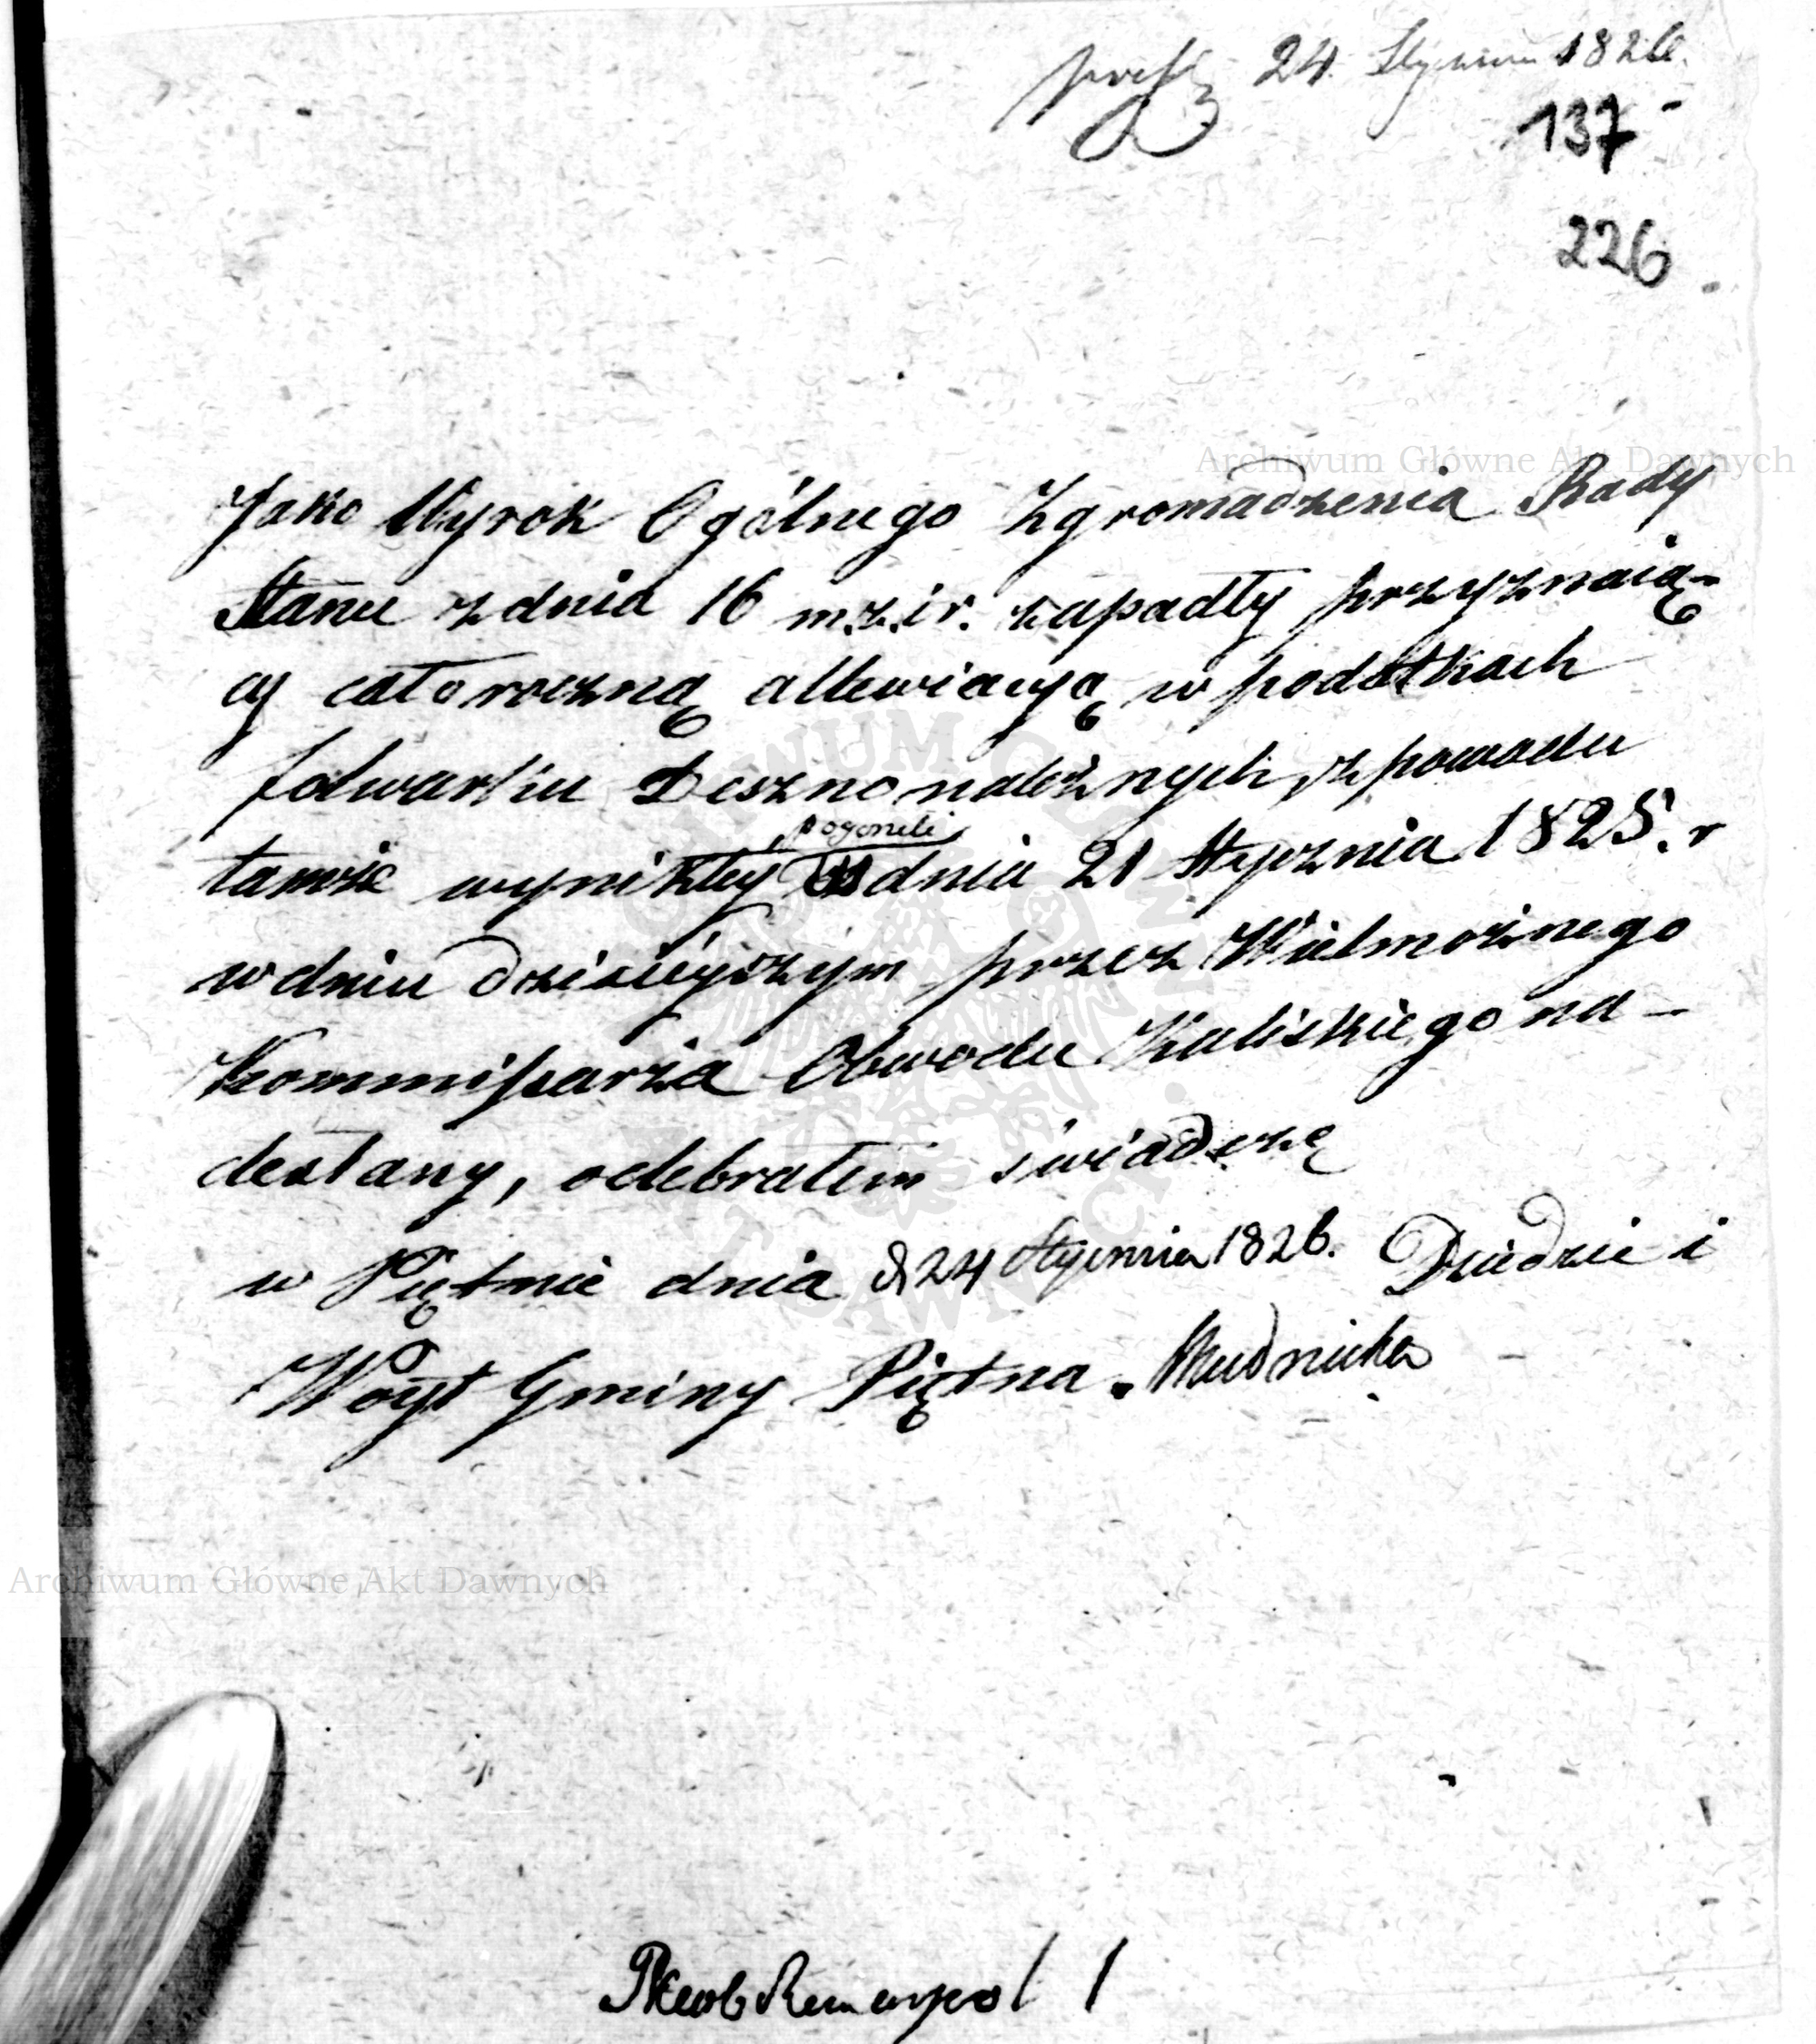 24. Stycznia 1826.
137
226
Archiwum Główne Akt Dawnych
Jako Wyrok Ogólnego Zgromadzenia Rady
Stanu z dnia 16 m. z. i r. zapadły przyznaią-
cy całoroczną allewiacyą w podatkach
folwarku Deszno należnych, z powodu
pogoreli
tamże wynikłey dnia 21 Stycznia 1825. r
w dniu dzisieyszym przez Wielmożnego
Kommissarza Obwodu Kaliskiego na-
desłany, odebrałem świadczę
w Piętnie dnia 24 Stycznia 1826. Dziedzic i
Woyt Gminy Piętna.
Archiwum Główne Akt Dawnych